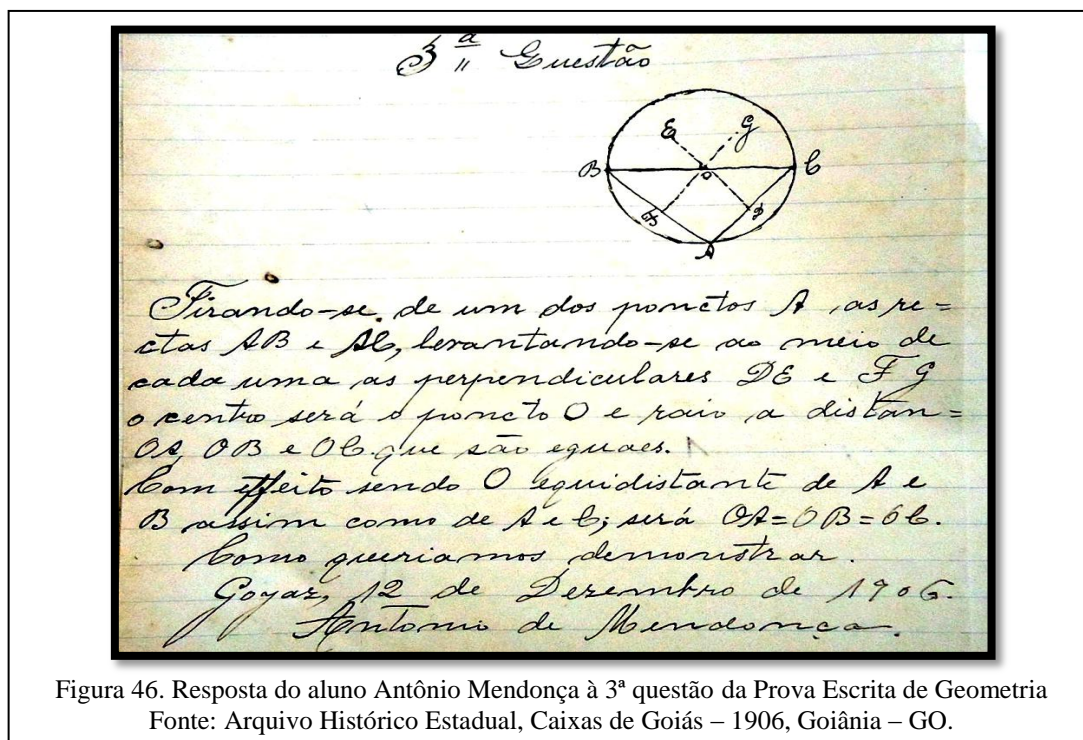 3ª Questão
E G
B o C
F D
A
Tirando-se de um dos ponctos A, as re=
ctas AB e AC, levantando-se ao meio de
cada uma as perpendiculares DE e FG
o centro será o poncto O e raio a distan=
OA, OB e OC que são eguaes.
Com effeito sendo O equidistante de A e
B assim como de A e C; será OA=OB=OC.
Como queriamos demonstrar.
Goyaz, 12 de Dezembro de 1906.
Antonio de Mendonça.
Figura 46. Resposta do aluno Antônio Mendonça à 3ª questão da Prova Escrita de Geometria
Fonte: Arquivo Histórico Estadual, Caixas de Goiás – 1906, Goiânia – GO.